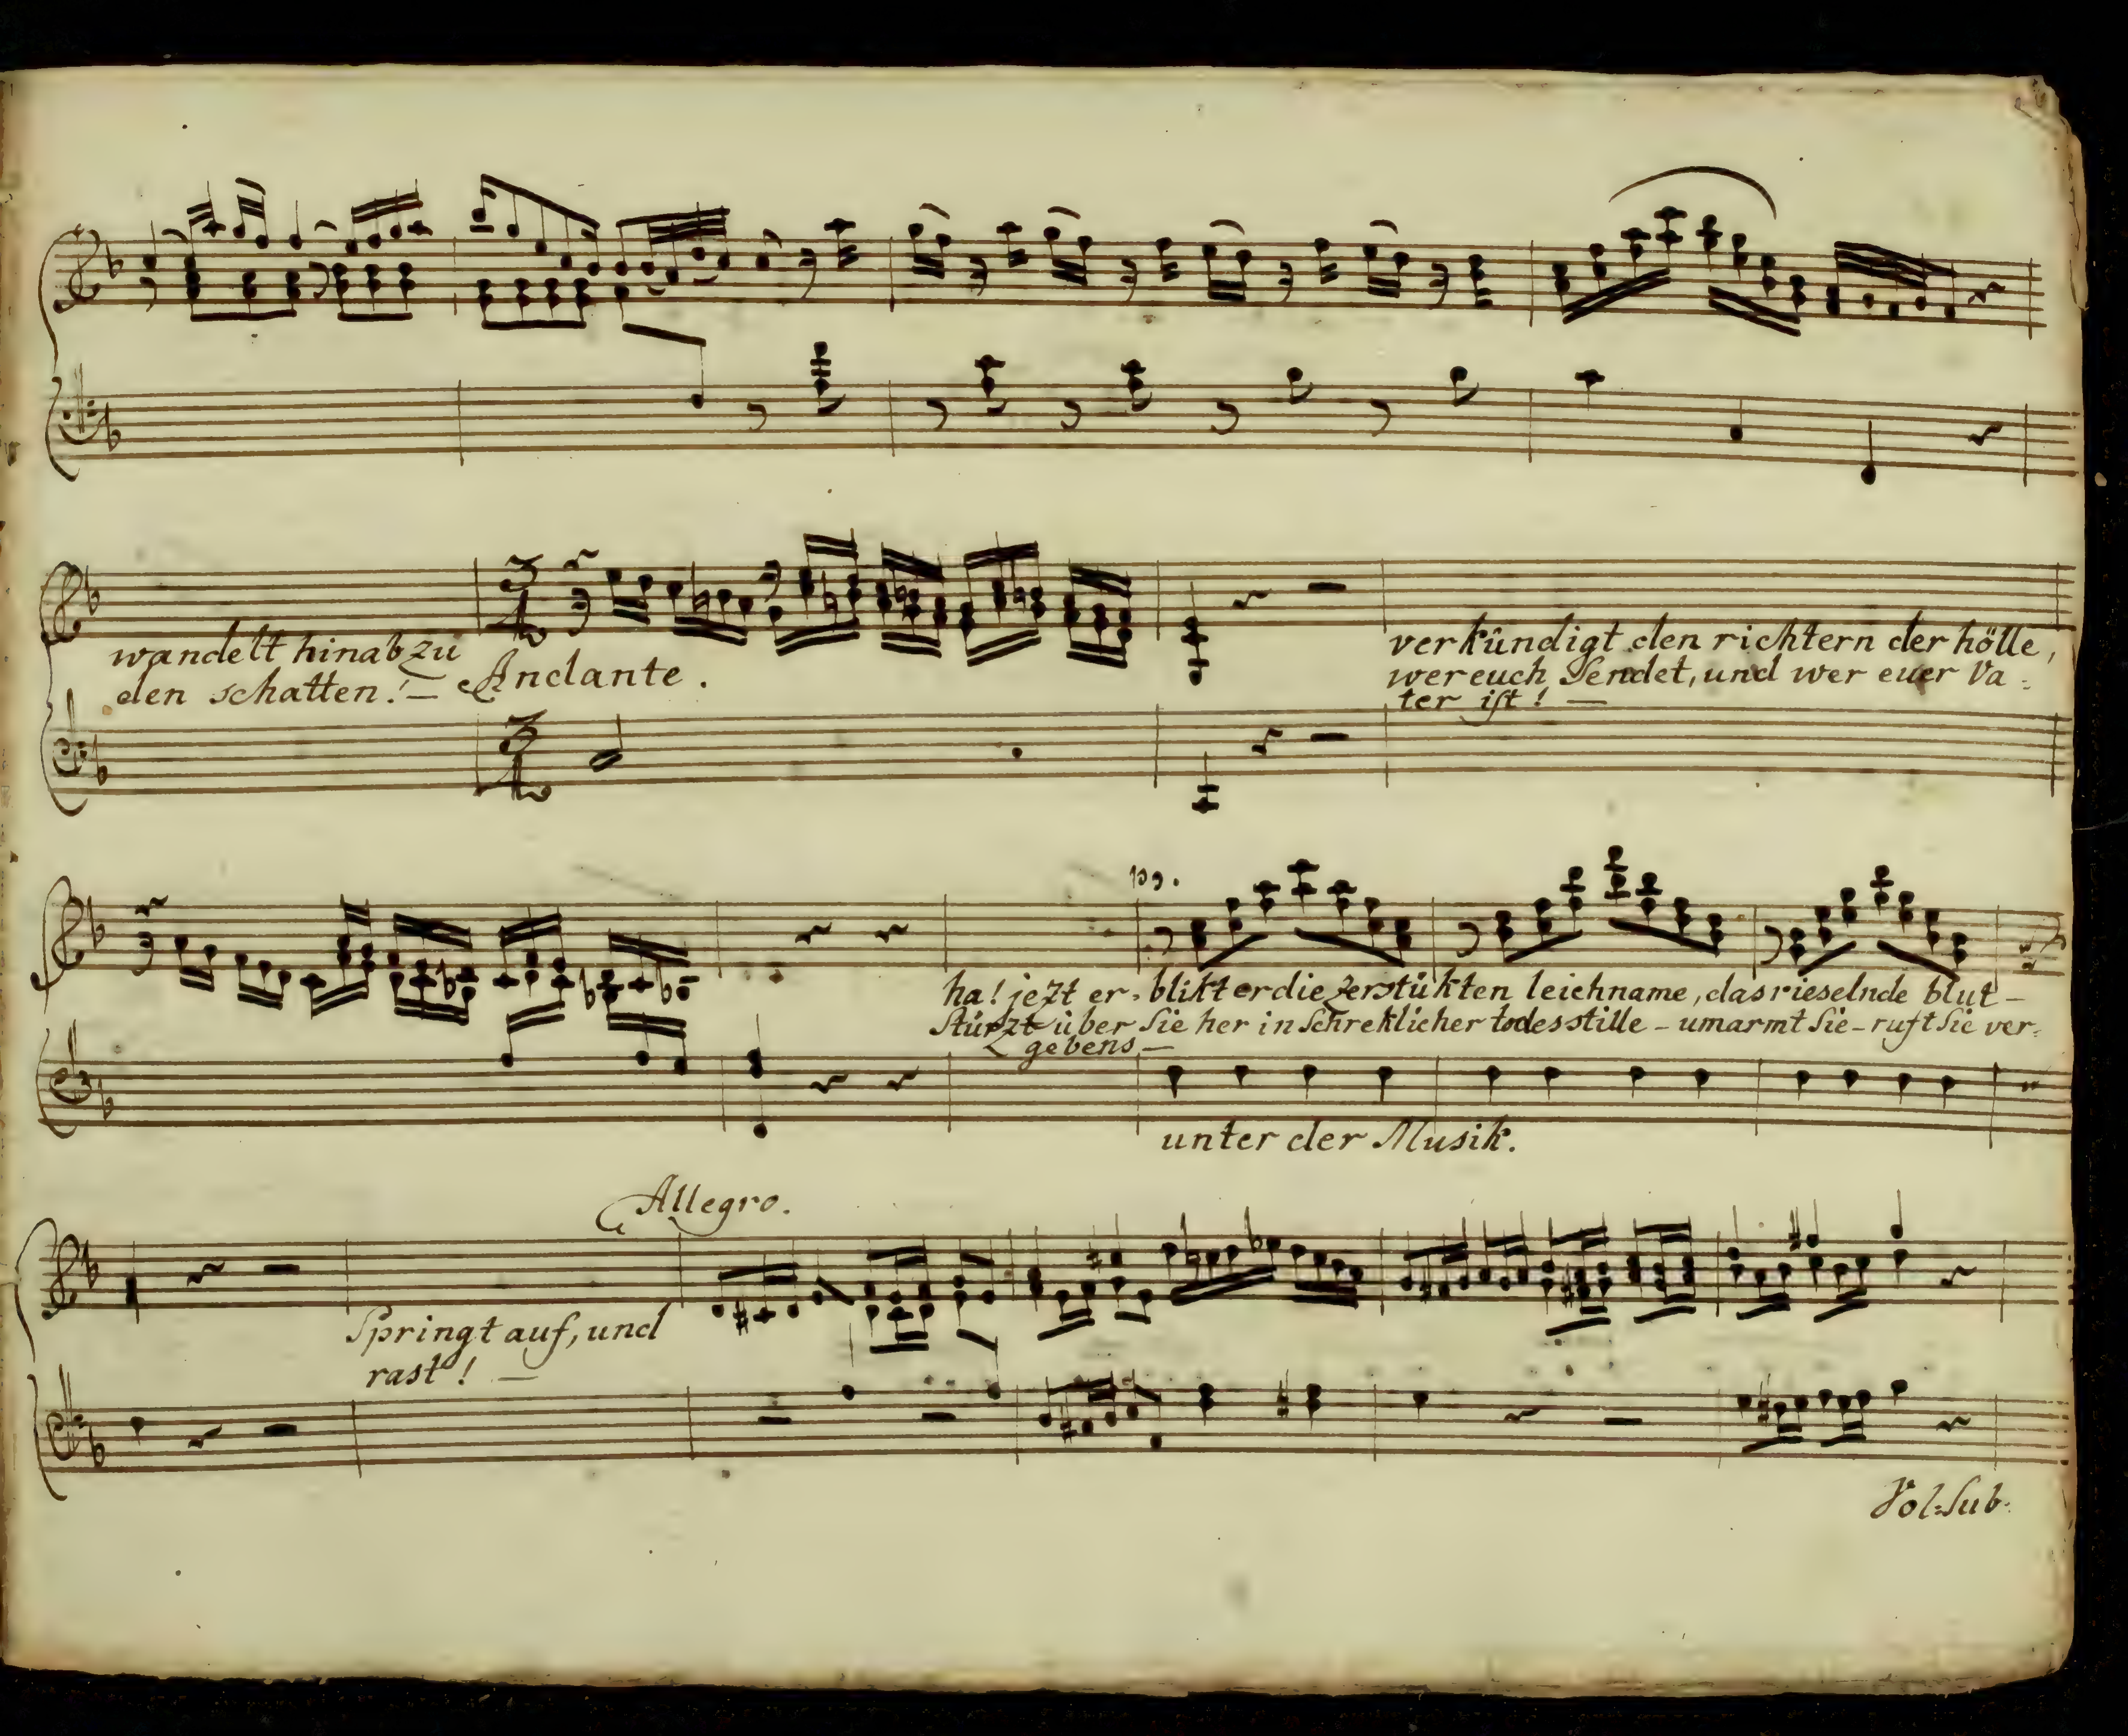 wandelt hinab zu
den schatten! —
Andante.
verkündigt den richtern der hölle,
wer euch Sendet, und wer euer Va=
ter ist! —
pp.
ha! jezt er=blikt er die zerstükten leichname, das rieselnde blut —
Stürzt über Sie her in Schreklicher todesstille — umarmt Sie — ruft Sie ver=
gebens —
unter der Musik.
Allegro.
Springt auf, und
rast! —
Vol: Sub: